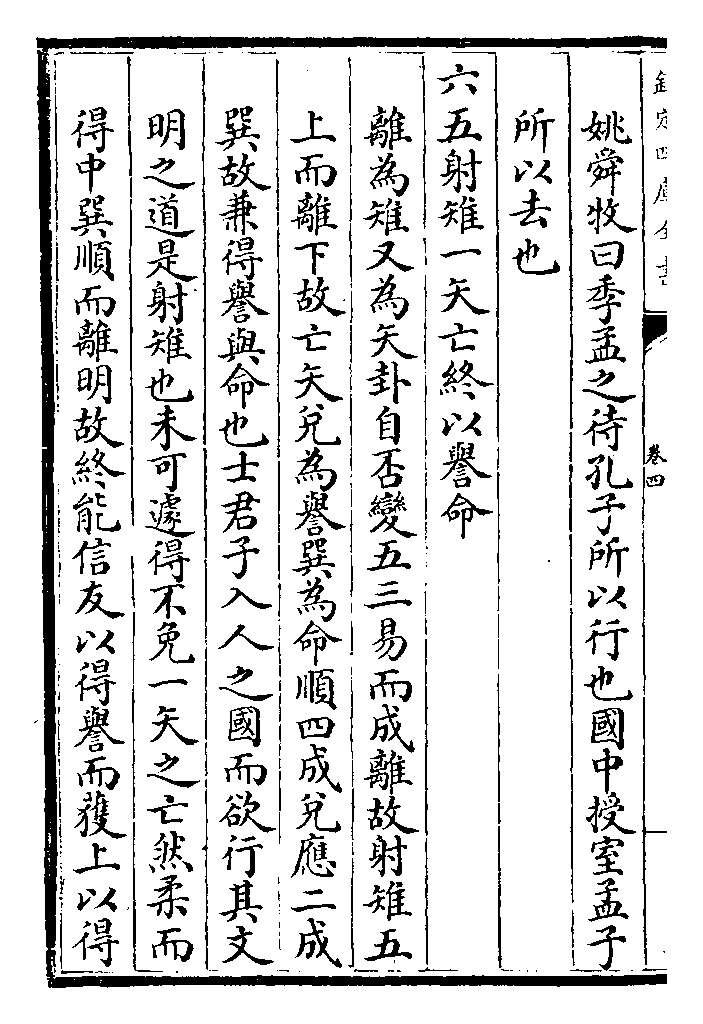 欽定四庫全書
卷四
姚舜牧曰季孟之待孔子所以行也國中授室孟子
所以去也
六五射雉一矢亡終以譽命
離為雉又為矢卦自否變五三易而成離故射雉五
上而離下故亡矢兌為譽巽為命順四成兌應二成
巽故兼得譽與命也士君子入人之國而欲行其文
明之道是射雉也未可遽得不免一矢之亡然柔而
得中巽順而離明故終能信友以得譽而獲上以得